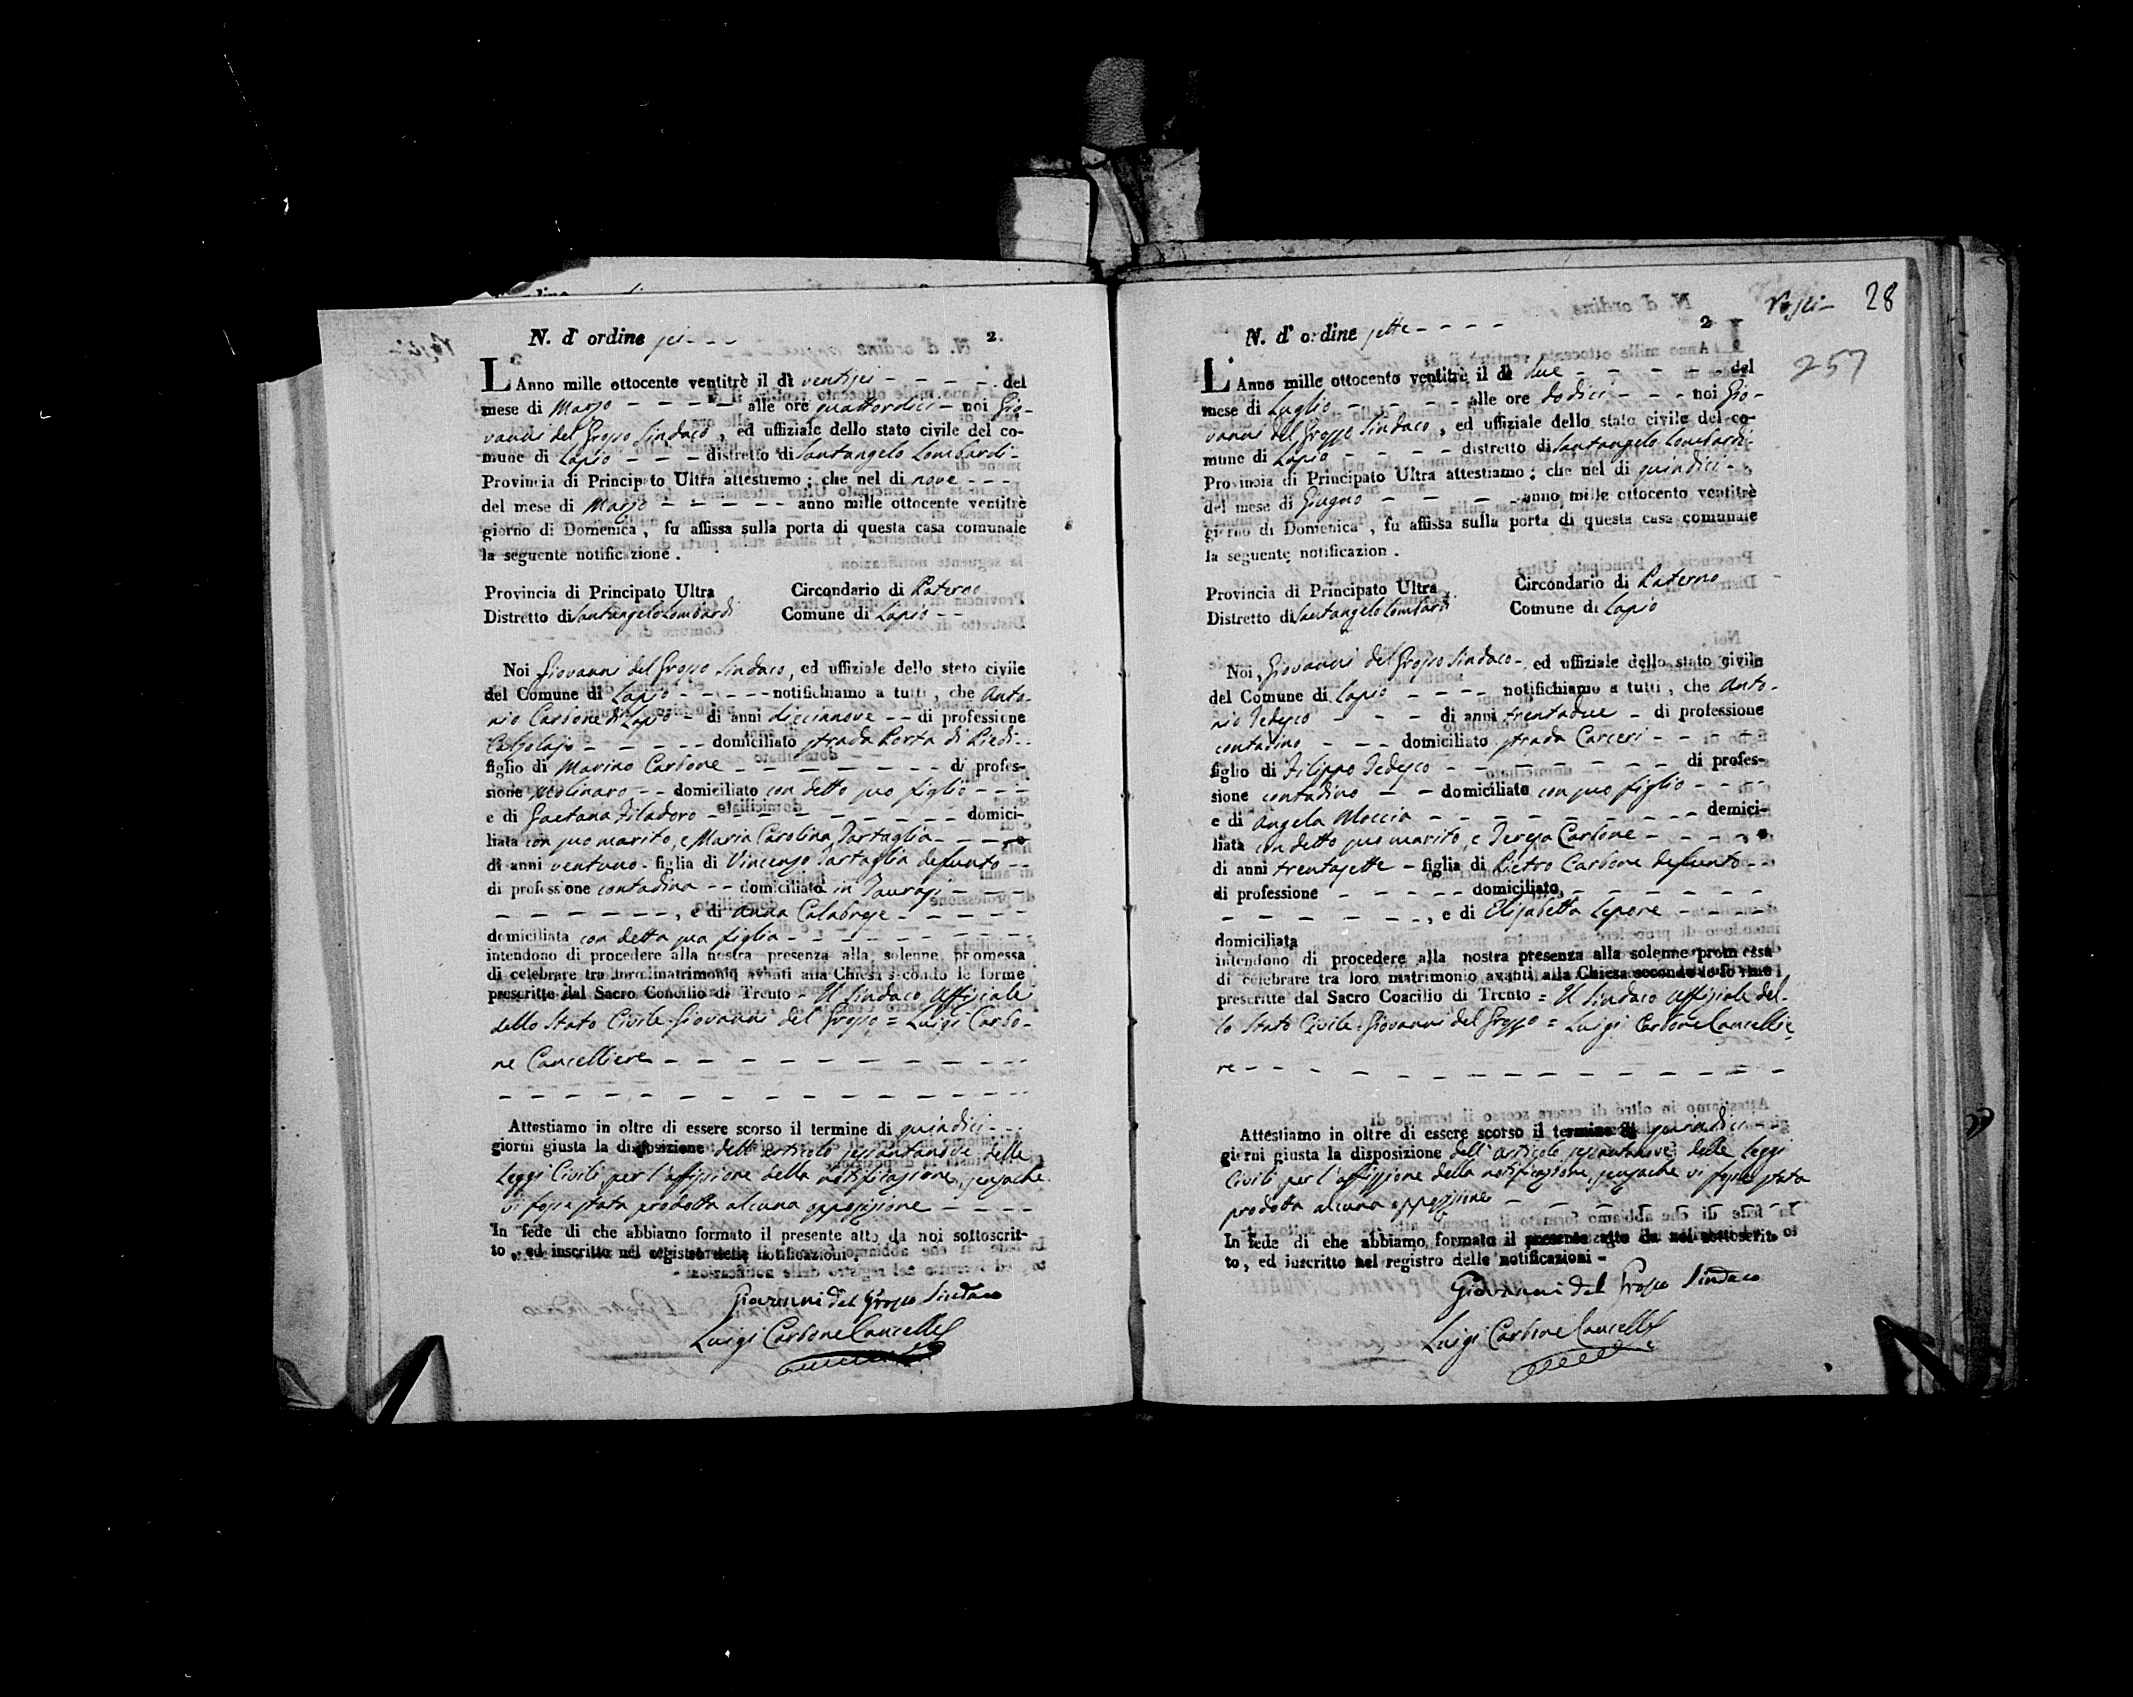 N. d' ordine sei - - -
2.
L'Anno mille ottocento ventitrè il dì ventisei - - - - - del
mese di Marzo - - - - alle ore quattordici - noi Gio-
vanni del Grosso Sindaco, ed uffiziale dello stato civile del co-
mune di Lapio - - - distretto di Santangelo Lombardi -
Provincia di Principato Ultra attestiamo ; che nel dì nove - - -
del mese di Marzo - - - - - anno mille ottocento ventitrè
giorno di Domenica , fu affissa sulla porta di questa casa comunale
la seguente notificazione .
Provincia di Principato Ultra Circondario di Paterno
Distretto di Santangelo Lombardi Comune di Lapio -
Noi Giovanni del Grosso Sindaco, ed uffiziale dello stato civile
del Comune di Lapio - - - - - notifichiamo a tutti , che Anto-
nio Carbone di Lapio - di anni diecianove - - di professione
Calzolajo - - - - - domiciliato strada Porta di Piedi - -
figlio di Marino Carbone - - - - - - - - di profes-
sione Molinaro - - domiciliato con detto suo figlio - - -
e di Gaetana Filadoro - - - - - - - - - domici-
liata con suo marito, e Maria Carolina Tartaglia - - - -
di anni ventuno - figlia di Vincenzo Tartaglia defunto - -
di professione contadina - - domiciliata in Taurasi - - -
- - - - - - - , e di Anna Calabrese - - - - -
domiciliata con detta sua figlia - - - - - - - - -
intendono di procedere alla nostra presenza alla solenne promessa
di celebrare tra loro matrimonio avanti alla Chiesa secondo le forme
prescritte dal Sacro Concilio di Trento = Il Sindaco Uffiziale
dello Stato Civile Giovanni del Grosso = Luigi Carbo-
ne Cancelliere - - - - - - - - - - - - -
Attestiamo in oltre di essere scorso il termine di quindici - - -
giorni giusta la disposizione dell'articolo sessantanove delle
Leggi Civili per l'affissione della notificazione, senzache
vi fosse stata prodotta alcuna opposizione - - - -
In fede di che abbiamo formato il presente atto da noi sottoscrit-
to , ed inscritto nel registro delle notificazioni .
Giovanni del Grosso Sindaco
Luigi Carbone Cancell
28
N. d' ordine sette - - - -
2
257
L'Anno mille ottocento ventitrè il dì due - - - - - - del
mese di Luglio - - - - - alle ore dodici - - - noi Gio-
vanni del Grosso Sindaco , ed uffiziale dello stato civile del co-
mune di Lapio - - - - - distretto di Santangelo Lombardi -
Provincia di Principato Ultra attestiamo ; che nel dì quindici -
del mese di Giugno - - - - anno mille ottocento ventitrè
giorno di Domenica , fu affissa sulla porta di questa casa comunale
la seguente notificazion .
Provincia di Principato Ultra Circondario di Paterno
Distretto di Santangelo Lombardi Comune di Lapio
Noi Giovanni del Grosso Sindaco - ed uffiziale dello stato civile
del Comune di Lapio - - - - notifichiamo a tutti , che Anto-
nio Tedesco - - - di anni trentadue - di professione
contadino - - - domiciliato strada Carceri - - - -
figlio di Filippo Tedesco - - - - - - - - di profes-
sione contadino - - domiciliato con suo figlio - - - -
e di Angela Moccia - - - - - - - - - - demici-
liata con detto suo marito, e Teresa Carbone - - - -
di anni trentasette - figlia di Pietro Carbone defunto - -
di professione - - - - - - domiciliato, - - - - - -
- - - - - - - , e di Elisabetta Lepore - - - -
domiciliata
intendono di procedere alla nostra presenza alla solenne promessa
di celebrare tra loro matrimonio avanti alla Chiesa secondo le forme
prescritte dal Sacro Coacilio di Trento = Il Sindaco Uffiziale del-
lo Stato Civile Giovanni del Grosso = Luigi Carbone Cancellie-
re - - - - - - - - - - - - - - -
Attestiamo in oltre di essere scorso il termine di quindici - -
giorni giusta la disposizione dell'articolo sessantanove delle Leggi
Civili per l'affissione della notificazione, senzache vi fosse stata
prodotta alcuna opposizione - - - - - - - -
In fede di che abbiamo formato il presente atto da noi sottoscrit-
to , ed inscritto nel registro delle notificazioni -
Giovanni del Grosso Sindaco
Luigi Carbone Cancell